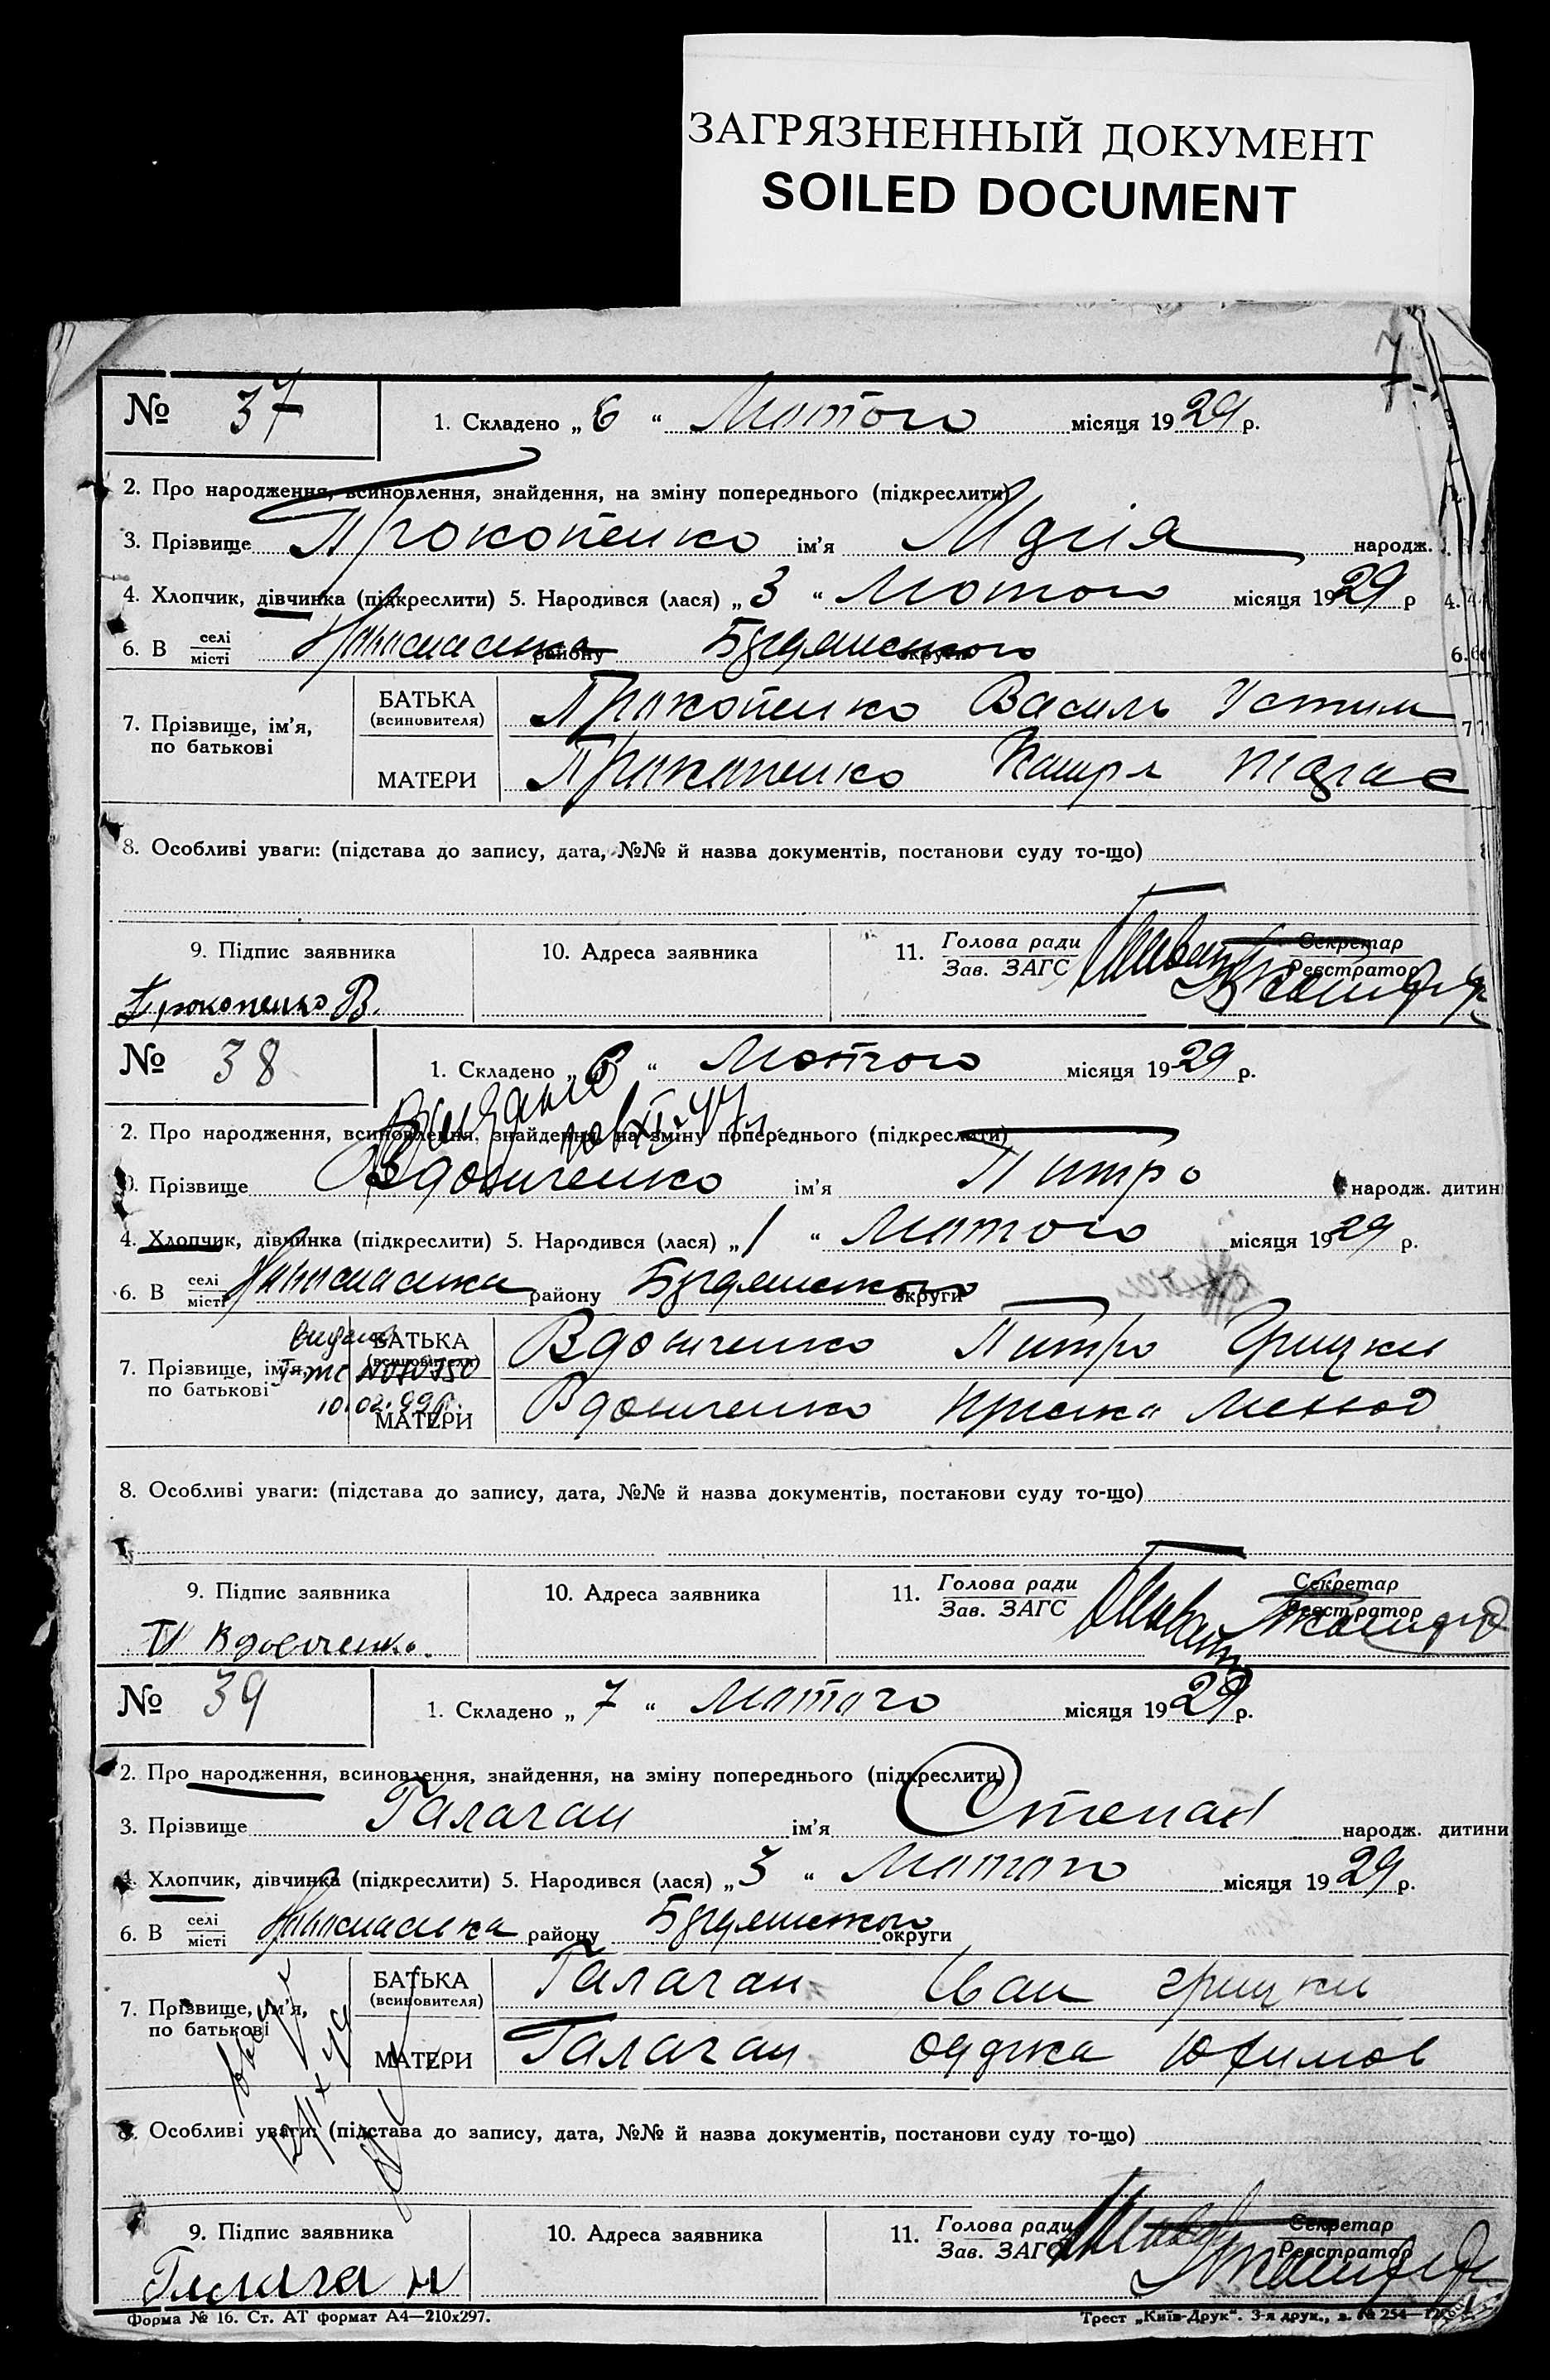 ЗАГРЯЗНЕННЫЙ ДОКУМЕНТ
SOILED DOCUMENT
7
№ 37
1. Складено „ 6 “ Лютого місяця 1929 р.
2. Про народження, всиновлення, знайдення, на зміну попереднього (підкреслити)
3. Прізвище Прокопенко ім'я народж.
4. Хлопчик, дівчинка (підкреслити) 5. Народився (лася) „ 3 “ Лютого місяця 1929 р
6. В селі/місті району округи
7. Прізвище, ім'я, по батькові
БАТЬКА (всиновителя) Прокопенко Василь Устим
МАТЕРИ Прокопенко
8. Особливі уваги: (підстава до запису, дата, №№ й назва документів, постанови суду то-що)
9. Підпис заявника 10. Адреса заявника 11. Голова ради/Зав. ЗАГС Секретар/Реєстратор
Прокопенко В.
№ 38
1. Складено „ 6 “ Лютого місяця 1929 р.
2. Про народження, всиновлення, знайдення, на зміну попереднього (підкреслити)
3. Прізвище Вдовиченко ім'я Питро народж. дитин
4. Хлопчик, дівчинка (підкреслити) 5. Народився (лася) „ 1 “ Лютого місяця 1929 р.
6. В селі/місті району округи
7. Прізвище, ім'я, по батькові
БАТЬКА (всиновителя) Вдовиченко Питро Грицьків
МАТЕРИ Вдовиченко
8. Особливі уваги: (підстава до запису, дата, №№ й назва документів, постанови суду то-що)
9. Підпис заявника 10. Адреса заявника 11. Голова ради/Зав. ЗАГС Секретар/Реєстратор
П Вдовиченко.
№ 39
1. Складено „ 7 “ Лютого місяця 1929 р.
2. Про народження, всиновлення, знайдення, на зміну попереднього (підкреслити)
3. Прізвище Галаган ім'я Степан народж. дитини
4. Хлопчик, дівчинка (підкреслити) 5. Народився (лася) „ 3 “ Лютого місяця 1929 р.
6. В селі/місті району округи
7. Прізвище, ім'я, по батькові
БАТЬКА (всиновителя) Галаган Іван Грицьків
МАТЕРИ Галаган Юхимов
8. Особливі уваги: (підстава до запису, дата, №№ й назва документів, постанови суду то-що)
9. Підпис заявника 10. Адреса заявника 11. Голова ради/Зав. ЗАГС Секретар/Реєстратор
Галаган
Форма № 16. Ст. АТ формат А4—210х297. Трест „Київ-Друк“. 3-я друк., з. № 254